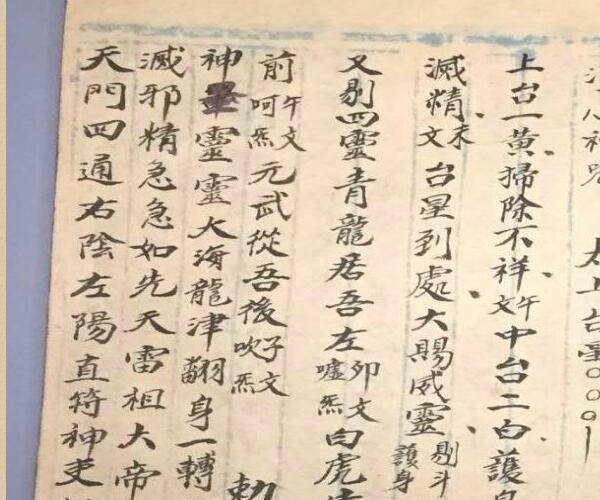 太上台星
上台一黄掃除不祥午文中台二白護身
滅精末文台星到處大賜威靈剔斗護身
又剔四靈青龍居吾左卯文噓炁白虎
前午文呵炁元武從吾後子文吹炁勅
神靈靈大海龍津翻身一轉
滅邪精急急如先天雷祖大帝
天門四通右陰左陽直符神吏